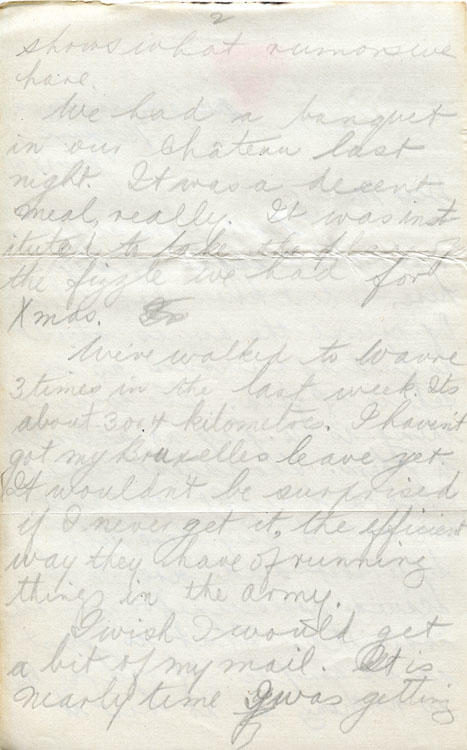 2
shows what rumors we
have.
We had a banquet
in our Château last
night. It was a decent
meal, really. It was inst
ituted to take the place of
the fizzle we had for
Xmas.
We've walked to Wavre
3 times in the last week. Its
about 3 or 4 kilometres. I haven't
got my Bruxelles leave yet.
It wouldn't be surprised
if I never get it, the efficient
way they have of running
things in the army.
I wish I would get
a bit of my mail. It is
nearly time I was getting